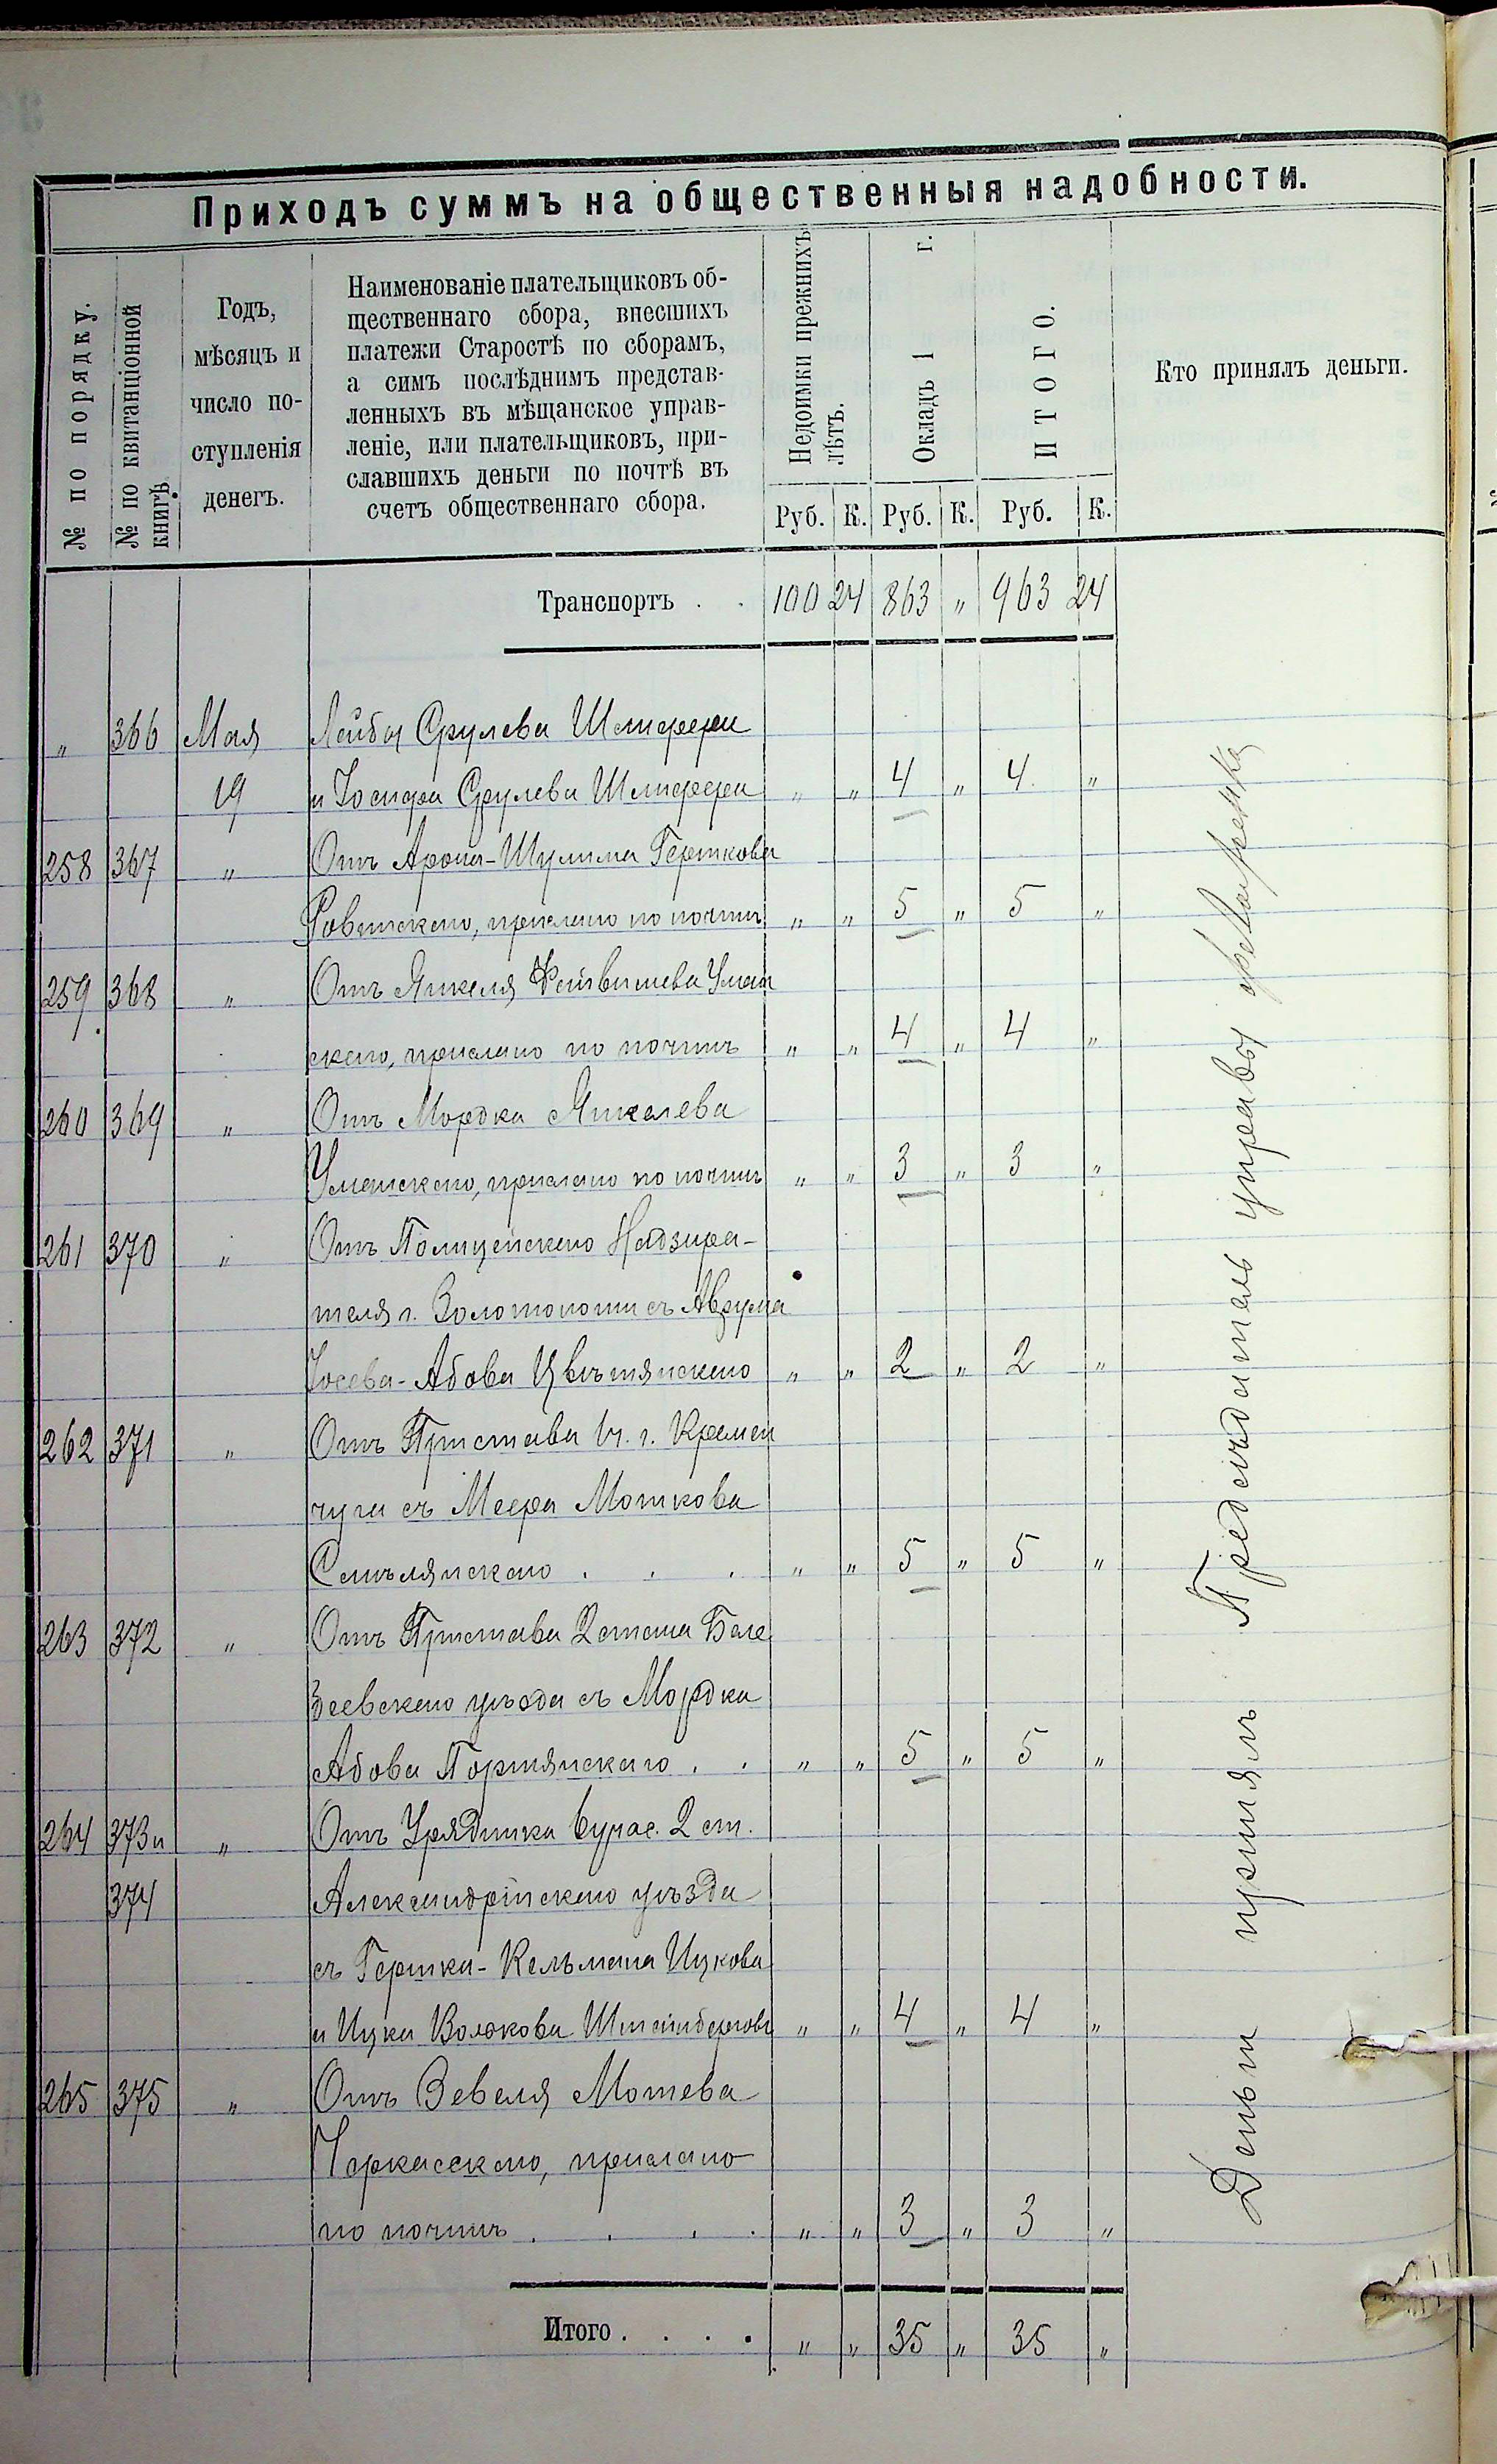 Приходъ суммъ на общественныя надобности.
№ по порядку.
№ по квитанціонной книгѣ.
Годъ,
мѣсяцъ и
число по-
ступленія
денегъ.
Наименованіе плательщиковъ об-
щественнаго сбора, внесшихъ
платежи Старостѣ по сборамъ,
а симъ послѣднимъ представ-
ленныхъ въ мѣщанское управ-
леніе, или плательщиковъ, при-
славшихъ деньги по почтѣ въ
счетъ общественнаго сбора.
Недоимки прежнихъ лѣтъ.
Окладъ 1 г.
ИТОГО.
Кто принялъ деньги.
Руб. К. Руб. К. Руб. К.
Транспортъ . . 100 24 863 " 963 24
" 366 Мая Лейбы Срулева
19 и Срулева " " 4 " 4 "
258 367 " Отъ Арона-Шулима Гершкова
прислано по почтѣ " " 5 " 5 "
259 368 " Отъ Янкеля Фейвишева Уман
скаго, прислано по почтѣ " " 4 " 4 "
260 369 " Отъ Мордка Янкелева
Уманскаго, прислано по почтѣ " " 3 " 3 "
261 370 " Отъ Полицейскаго Надзира-
теля г. Золотоноши съ Аврума
Іосева-Абова Цвѣтянскаго " " 2 " 2 "
262 371 " Отъ Пристава 1 ч. г. Кремен
чуга съ Меера Мошкова
Смѣлянскаго . . . " " 5 " 5 "
263 372 " Отъ Пристава 2 стана
уѣзда съ Мордка
Абова Портянскаго . . " " 5 " 5 "
264 373 и " Отъ Урядника 6 учас. 2 ст.
374 Александрійскаго уѣзда
съ Гершка-Кельмана Ицкова
и Ицка Волькова " " 4 " 4 "
265 375 " Отъ Зевеля Мошева
Черкасскаго, прислано
по почтѣ . . . . " " 3 " 3 "
Итого . . . . " " 35 " 35 "
Деньги принялъ Предсѣдатель управы